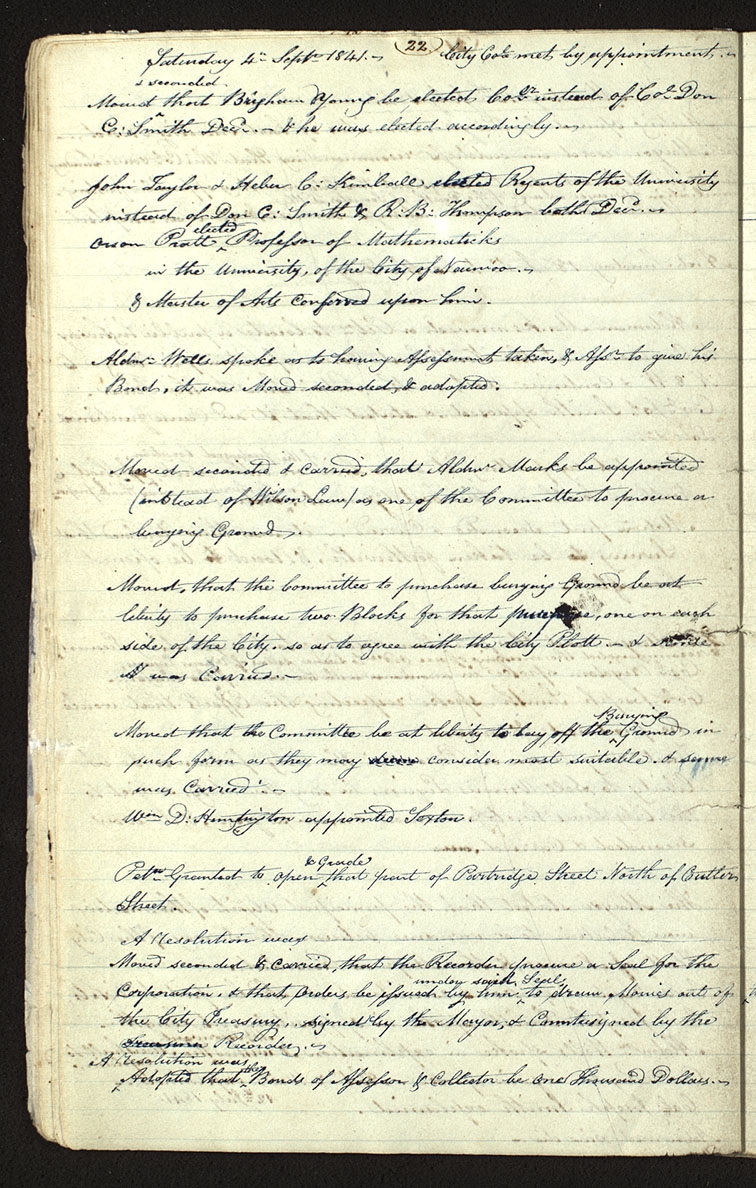 22
Saturday 4th Septr. 1841.— City Col. met by appointment.—
& seconded
Moved that Brigham Young be elected Colr. instead of Col. Don
C: Smith Decd.— & he was elected accordingly.—
John Taylor & Heber C: Kimball elected Regents of the University
instead of Don C: Smith & R: B: Thompson both Decd.—
elected
Orson Pratt Professor of Mathematicks
in the University, of the City of Nauvoo.—
& Master of Arts conferred upon him.
Aldn. Wells spoke as to having Assessment taken, & Assr. to give his
Bond, it was Moved seconded, & adopted.
Moved seconded & carried, that Aldn. Marks be appointed
(instead of Wilson Law) as one of the Committee to procure a
burying Ground.
Moved, that the Committee to purchase burying Ground be at
liberty to purchase two Blocks for that purpose, one on each
side of the City. so as to agree with the City Plott.— &
It was Carried.—
Burying
Moved that the Committee be at liberty to lay off the Ground in
such form as they may consider most suitable. & same
was Carried.—
Wm D: Huntington appointed Sexton.
& Grade
Petn. Granted to open that part of Partridge Street North of Cutler
Street
A Resolution was
Moved seconded & carried, that the Recorder procure a Seal for the
under said Seal,
Corporation, & that Orders be issued by him to draw Monies out of
the City Treasury, signed by the Mayor, & Countersigned by the
Recorder.—
A Resolution was
the
Adopted that Bonds of Assessor & Collector be One Thousand Dollars.—